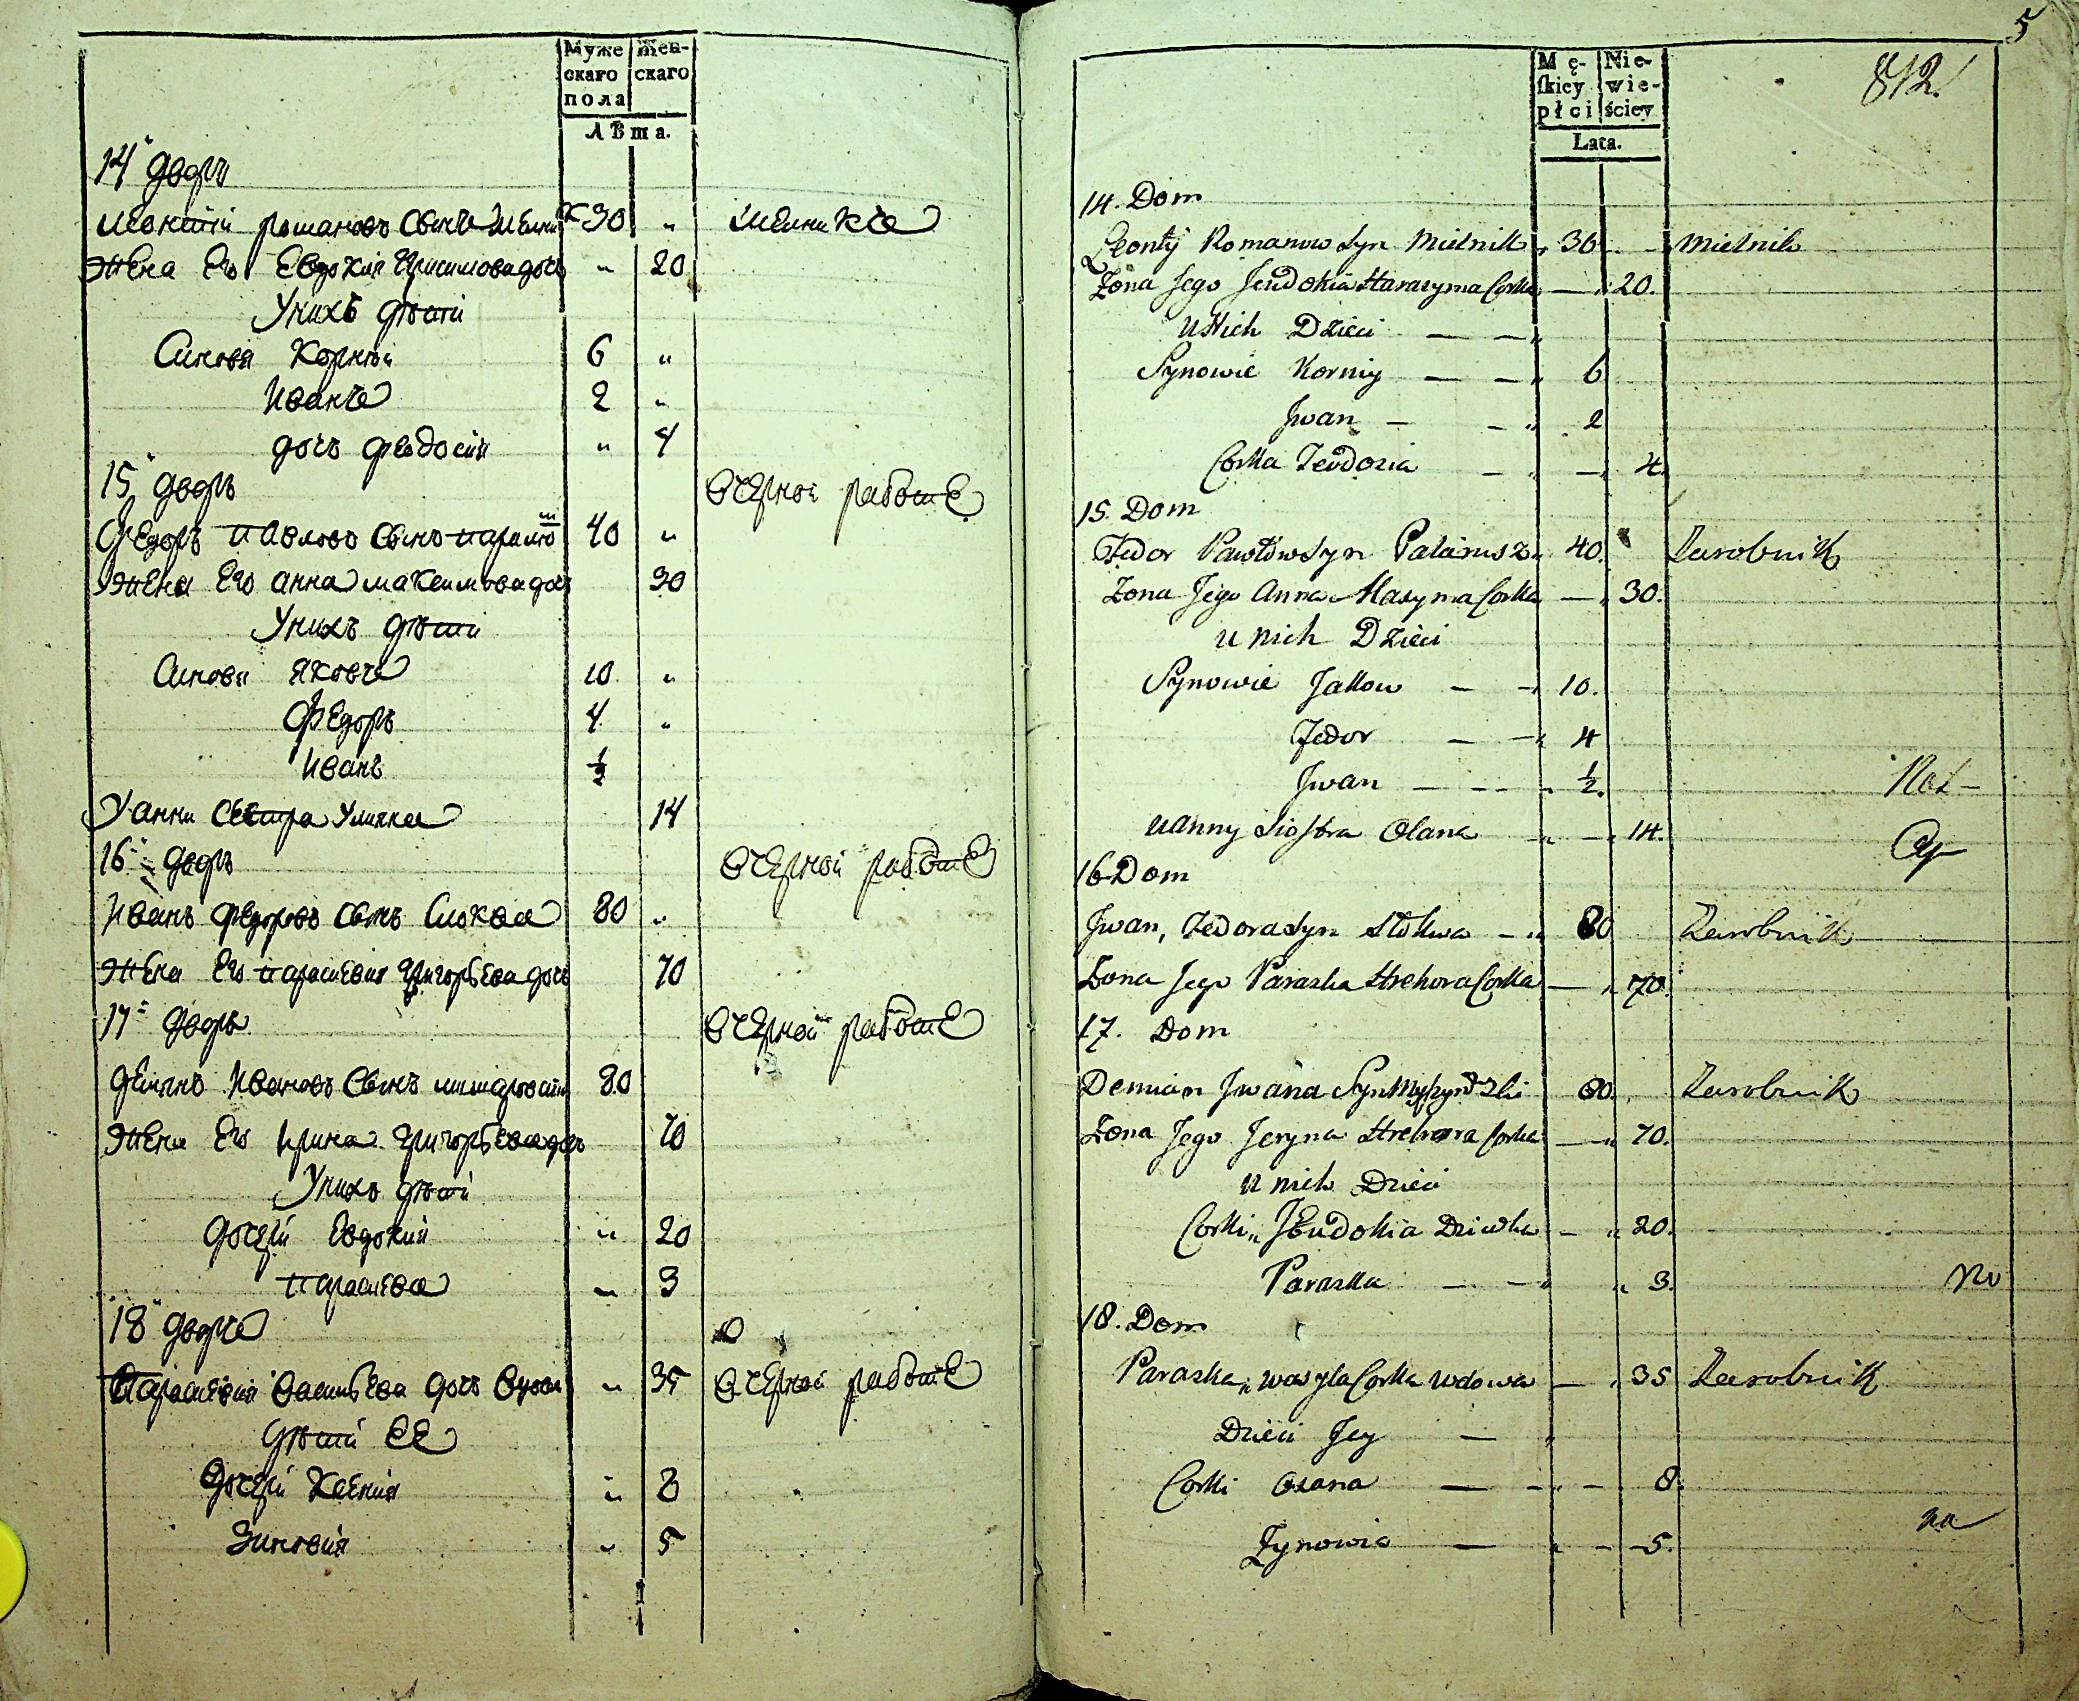 Муже
скаго
пола
Жен-
скаго
Лѣта.
14 дворъ
Романовъ сынъ 30 „
Жена Его Евдокия дочь „ 20
У нихъ дѣти
Синовя Корнѣй 6 „
Иванъ 2 „
дочь Феодосия „ 4
15 дворъ
в черной работе
Федоръ Павловъ сынъ 40 „
Жена Его Анна Максимова дочь 30
У нихъ дѣти
Синовя Яковъ 10 „
Федоръ 4 „
Иванъ ½
У Анни сестра Улияна 14
16 дворъ
в черной работе
Иванъ Федоровъ сынъ Слоква 80 „
Жена Его Параскевия Григорьева дочь 70
17 дворъ
в черной работе
Демянъ Ивановъ сынъ 80
Жена Его Ирина Григорьева дочь 70
У нихъ дѣти
дочери Евдокия „ 20
Параскева „ 3
18 дворъ
Параскевия Васильева дочь вдова „ 35 в черной работе
дѣти ЕЕ
дочери Ксения „ 8
Зиновия „ 5
5
Mę-
skiey
płci
Nie-
wie-
ściey
Lata.
812.
14. Dom
Leonty Romanow Syn Mielnik „ 30 Mielnik
Żona Jego Jeudokia Harasyma Corka — „ 20.
u Nich Dzieci — — „
Synowie Korniy — — „ 6
Jwan — — „ 2
Corka Teudozia — „ — „ 4.
15. Dom
Fedor Pawłow Syn „ 40. Zarobnik
Żona Jego Anna Maxyma Corka — „ 30.
u nich Dzieci
Synowie Jakow — — 10.
Fedor — — „ 4
Jwan — — — „ ½.
u Anny Siostra Olana „ — „ 14.
16 Dom
Jwan, Fedora Syn Stokwa — „ 80 Zarobnik
Żona Jego Paraska Hrehora Corka — „ 70.
17. Dom
Demian Jwana Syn 80. Zarobnik
Żona Jego Jeryna Hrehora Corka — „ 70.
u nich Dzieci
Corki „ Jeudokia Dziwka — „ 20.
Paraska — — „ „ 3.
18. Dom
Paraska „ Wasyla Corka wdowa — „ 35 Zarobnik
Dzieci Jey — „
Corki Oxana — — „ — 8.
Zynowia — „ — 5.
na